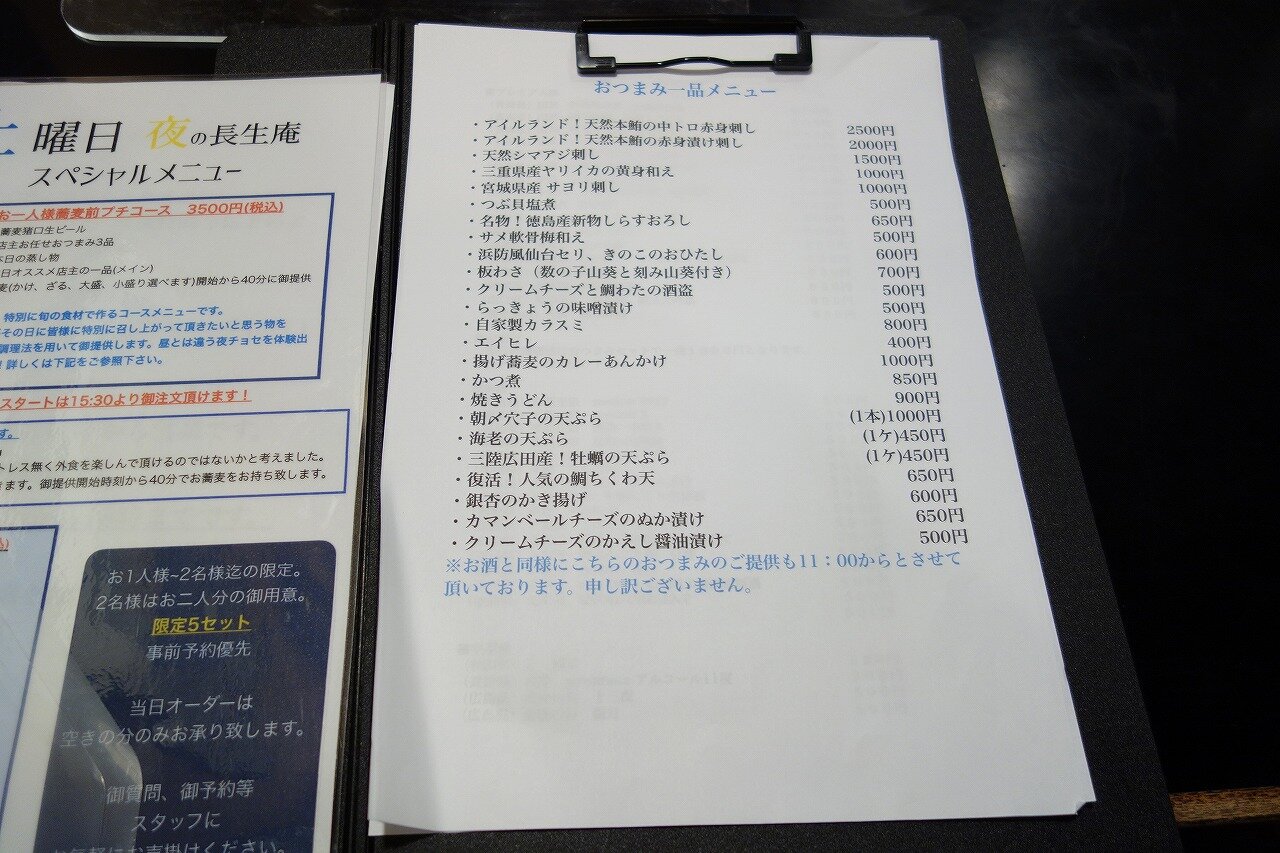 曜日 夜の長生庵
スペシャルメニュー
お一人様蕎麦前プチコース 3500円(税込)
蕎麦猪口生ビール
店主お任せおつまみ3品
本日の蒸し物
日オススメ店主の一品(メイン)
麦(かけ、ざる、大盛、小盛り選べます)開始から40分に御提供
特別に旬の食材で作るコースメニューです。
その日に皆様に特別に召し上がって頂きたいと思う物を
調理法を用いて御提供します。昼とは違う夜チョセを体験出
！詳しくは下記をご参照下さい。
スタートは15:30より御注文頂けます！
す。
トレス無く外食を楽しんで頂けるのではないかと考えました。
きます。御提供開始時刻から40分でお蕎麦をお持ち致します。
お1人様~2名様迄の限定。
2名様はお二人分の御用意。
限定5セット
事前予約優先
当日オーダーは
空きの分のみお承り致します。
御質問、御予約等
スタッフに
お気軽にお声掛けください。
おつまみ一品メニュー
・アイルランド！天然本鮪の中トロ赤身刺し 2500円
・アイルランド！天然本鮪の赤身漬け刺し 2000円
・天然シマアジ刺し 1500円
・三重県産ヤリイカの黄身和え 1000円
・宮城県産 サヨリ刺し 1000円
・つぶ貝塩煮 500円
・名物！徳島産新物しらすおろし 650円
・サメ軟骨梅和え 500円
・浜防風仙台セリ、きのこのおひたし 600円
・板わさ（数の子山葵と刻み山葵付き） 700円
・クリームチーズと鯛わたの酒盗 500円
・らっきょうの味噌漬け 500円
・自家製カラスミ 800円
・エイヒレ 400円
・揚げ蕎麦のカレーあんかけ 1000円
・かつ煮 850円
・焼きうどん 900円
・朝〆穴子の天ぷら (1本)1000円
・海老の天ぷら (1ケ)450円
・三陸広田産！牡蠣の天ぷら (1ケ)450円
・復活！人気の鯛ちくわ天 650円
・銀杏のかき揚げ 600円
・カマンベールチーズのぬか漬け 650円
・クリームチーズのかえし醤油漬け 500円
※お酒と同様にこちらのおつまみのご提供も11：00からとさせて
頂いております。申し訳ございません。